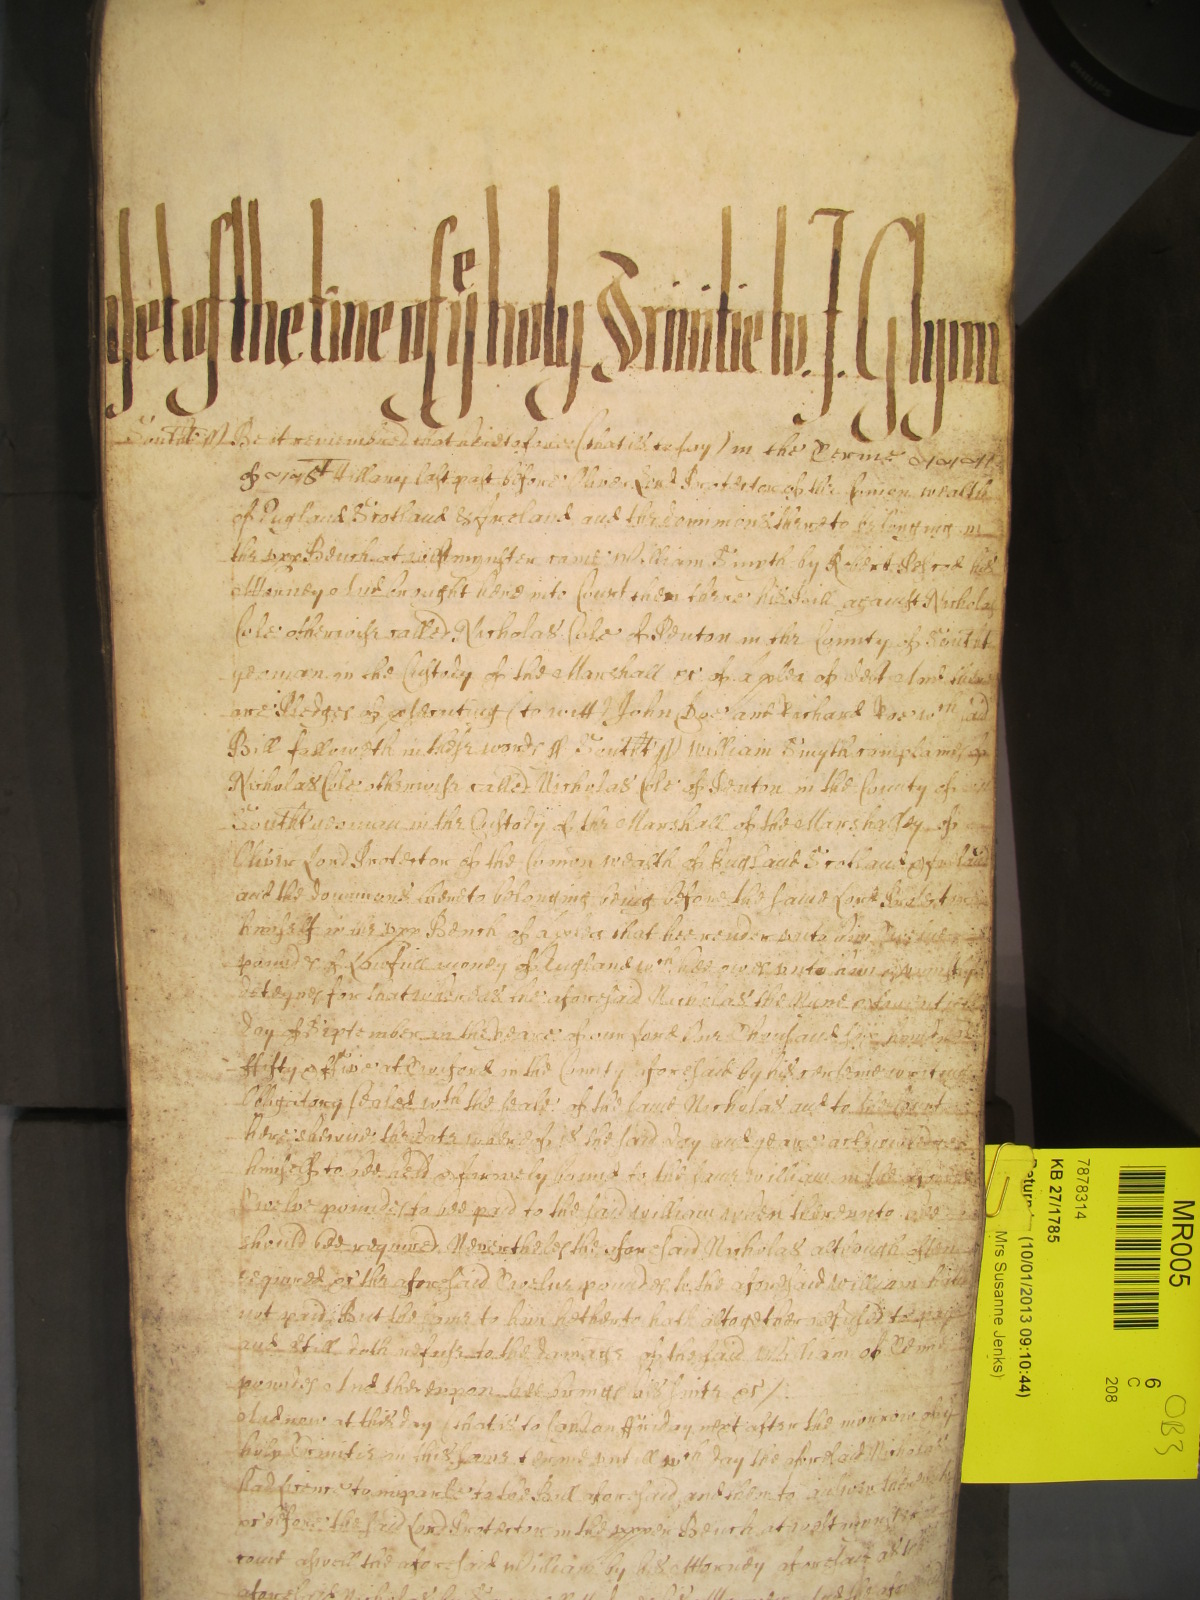 yet of the time of ye holy Trinitie w. J. Glynn
Southt ss Be it remembred that heretofore (that is to say) in the Terme
of St Hillary last past before Oliver Lord Protector of the Comon wealth
of England Scotland & Ireland and the dominions thereto belonging in
the upp Bench at westmynster came William Smyth by Robert his
Attorney And brought here into Court then there his Bill against Nicholas
Cole otherwise called Nicholas Cole of Penton in the County of Southt
yeoman in the Custody of the Marshall &c of a plea of debt And there
are Pledges of prosecuting (to witt) John Doe and Richard Roe wch said
Bill followeth in these words ss Southt ss William Smyth complaines of
Nicholas Cole otherwise called Nicholas Cole of Penton in the County of
Southt yeoman in the Custody of the Marshall of the Marshalsey of
Oliver Lord Protector of the Comon wealth of England Scotland & Ireland
and the dominions thereto belonging being before the same Lord Protector
himself in the upp Bench of a plea that hee render unto him Twelve
pounds of Lawfull money of England wch hee owes unto him & unjustly
deteynes for that whereas the aforesaid Nicholas the Nyne & twentieth
day of September in the yeare of our Lord One Thousand six hundred
ffifty & ffive at Twiford in the County aforesaid by his certeine writing
Obligatory sealed wth the seale of the same Nicholas and to the Court
here shewne the date whereof is the said day and yeare acknowledged
himself to bee held & firmely bound to the same William in the aforesaid
Twelve pounds to bee paid to the said William when thereunto hee
should bee required Neverthelesse the aforesaid Nicholas although often
required &c the aforesaid Twelve pounds to the aforesaid William hath
not paid But the same to him hetherto hath altogether refused to pay
and still doth refuse to the damage of the said William of Tenne
pounds And thereupon hee brings his suite &c /.
And now at this day (that is to say) on ffriday next after the morrow of the
holy Trinitie in this same terme untill wch day the aforesaid Nicholas
had licence to imparle to the Bill aforesaid and then to answer thereunto
&c before the said Lord Protector in the upper Bench at westmynster
come aswell the aforesaid William by his Attorney aforesaid as the
aforesaid Nicholas by
MR005
6
C
208
OB3
7878314
KB 27/1785
Return (10/01/2013 09:10:44)
Mrs Susanne Jenks)